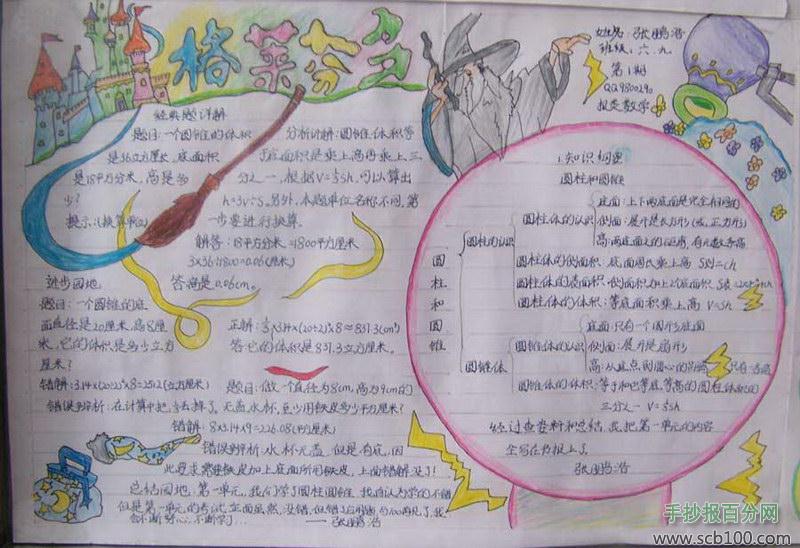 格莱芬多
姓名：张鹏浩
班级：六、九
第1期
报类数学
经典题详解
题目：一个圆锥的体积
是36立方厘米，底面积
是18平方分米，高是多
少？
提示：(换算单位)
分析讲解：圆锥体积等
于底面积乘上高再乘上三
分之一，根据V=⅓sh，可以算出
h=3V÷s。另外，本题单位名称不同，第
一步要进行换算。
解答：18平方分米=1800平方厘米
3×36÷1800=0.06(厘米)
答：高是0.06cm。
进步园地
题目：一个圆锥的底
面直径是20厘米，高8厘
米，它的体积是多少立方
厘米？
正解：⅓×3.14×(20÷2)²×8≈837.3(cm³)
答：它的体积是837.3立方厘米。
错解：3.14×(20÷2)²×8=2512(立方厘米)
错误剖析：在计算中把⅓去掉了。
题目：做一个直径为8cm，高为9cm的
无盖水杯，至少用铁皮多少平方厘米？
错解：8×3.14×9=226.08(平方厘米)
错误剖析：水杯无盖，但是有底，因
此要求需要铁皮加上底面所用铁皮，上面错解没了！
总结园地：第一单元，我们学了圆柱圆锥，我自认为学的不错
但是第一单元的考试
张鹏浩
1.知识梳理
圆柱和圆锥
圆柱和圆锥
圆柱的认识
圆柱体的认识
底面：上下两底面是完全相同的
侧面：展开是长方形(或正方形)
高：两底面之间的距离，有无数条高
圆柱体的侧面积：底面周长乘上高 S侧=ch
圆柱体的表面积：侧面积加上2个底面积
圆柱体的体积：等底面积乘上高 V=sh
圆锥体
圆锥体的认识
底面：只有一个圆形底面
侧面：展开是扇形
高：从顶点到圆心的距离，只有一条高
圆锥体的体积：等于和它等底等高的圆柱体积的
三分之一 V=⅓sh
经过查卷料和总结，我把第一单元的内容
全写在手报上了。
张鹏浩
手抄报百分网
www.scb100.com